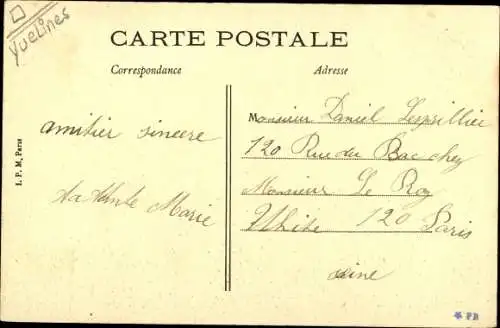 Yvelines
CARTE POSTALE
Correspondance
Adresse
amitier sincere
ta tante Marie
Monsieur Daniel Lepsillier
120 Rue du Bac chez
Monsieur Le Roy
120 Paris
seine
I. P. M, Paris
* PB